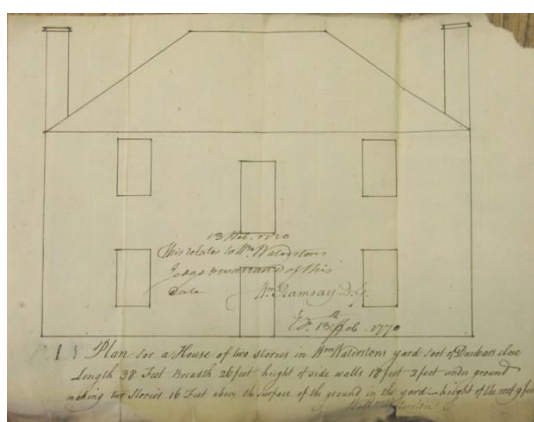 13 Feb. 1770
This relates to Wm. Waterstons
Judges warrand of this
Date Wm. Ramsay D. G.
13th Feb. 1770
Plan for a House of two stories in Wm Waterstons yard foot of Dunbars close
Length 38 Feet Breadth 26 feet height of side walls 18 feet 2 feet under ground
making two Stories 16 Feet above the surface of the ground in the yard - height of the roof 9 feet